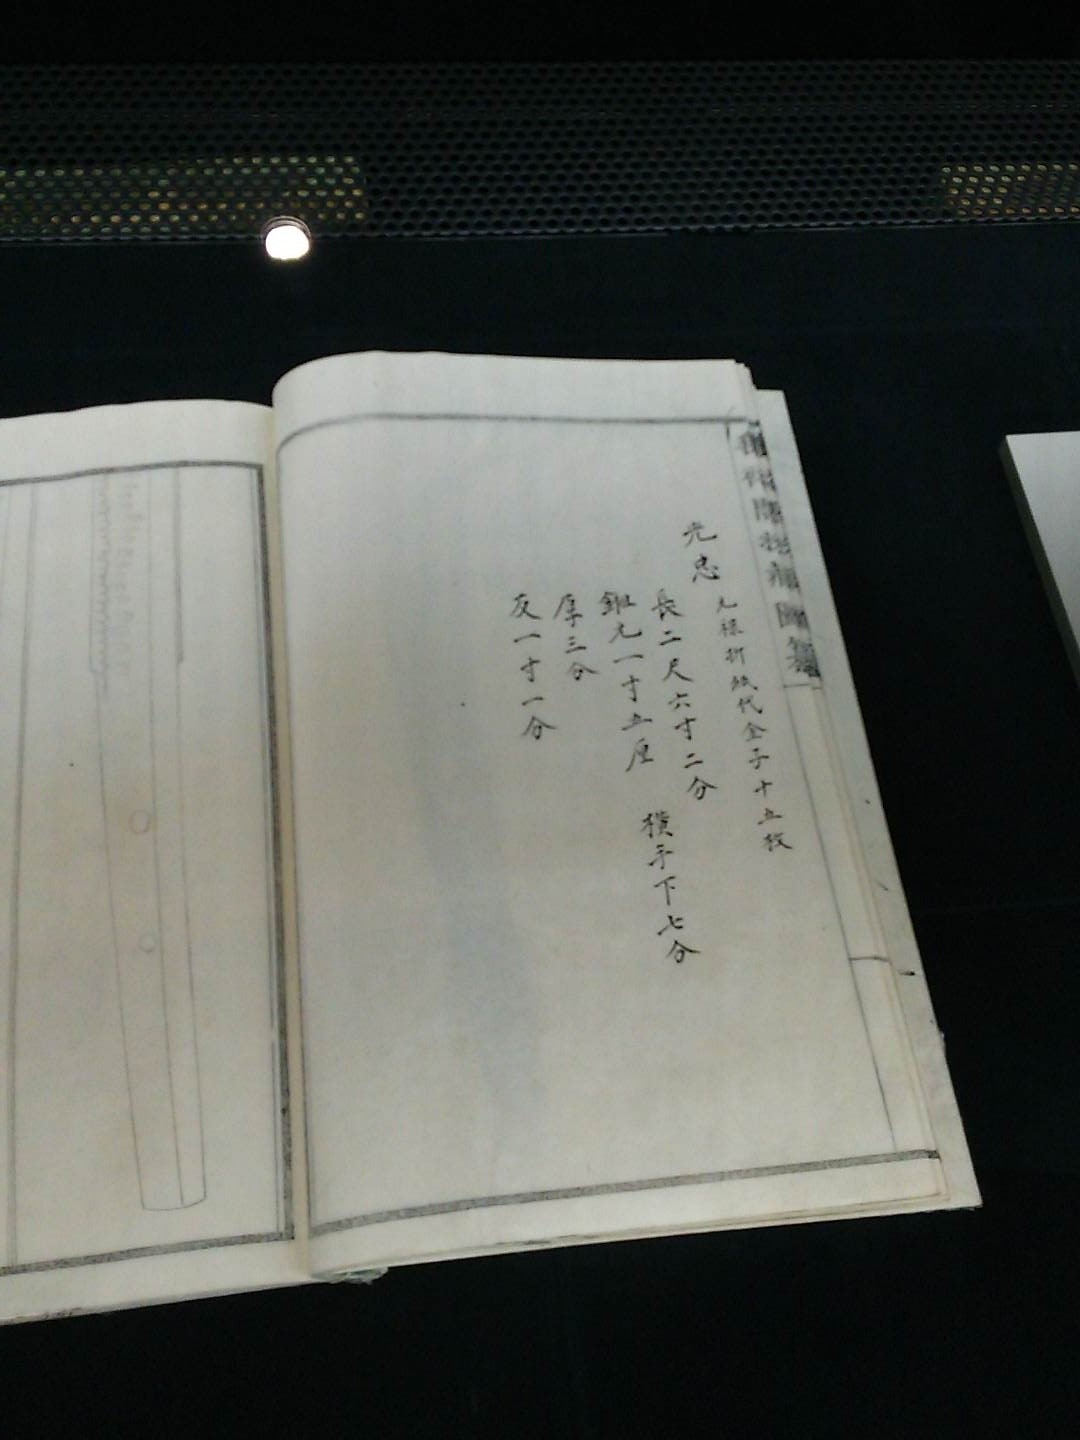 光忠
元禄折紙代金子十五枚
長二尺六寸二分
鎺元一寸五厘 横手下七分
厚三分
反一寸一分